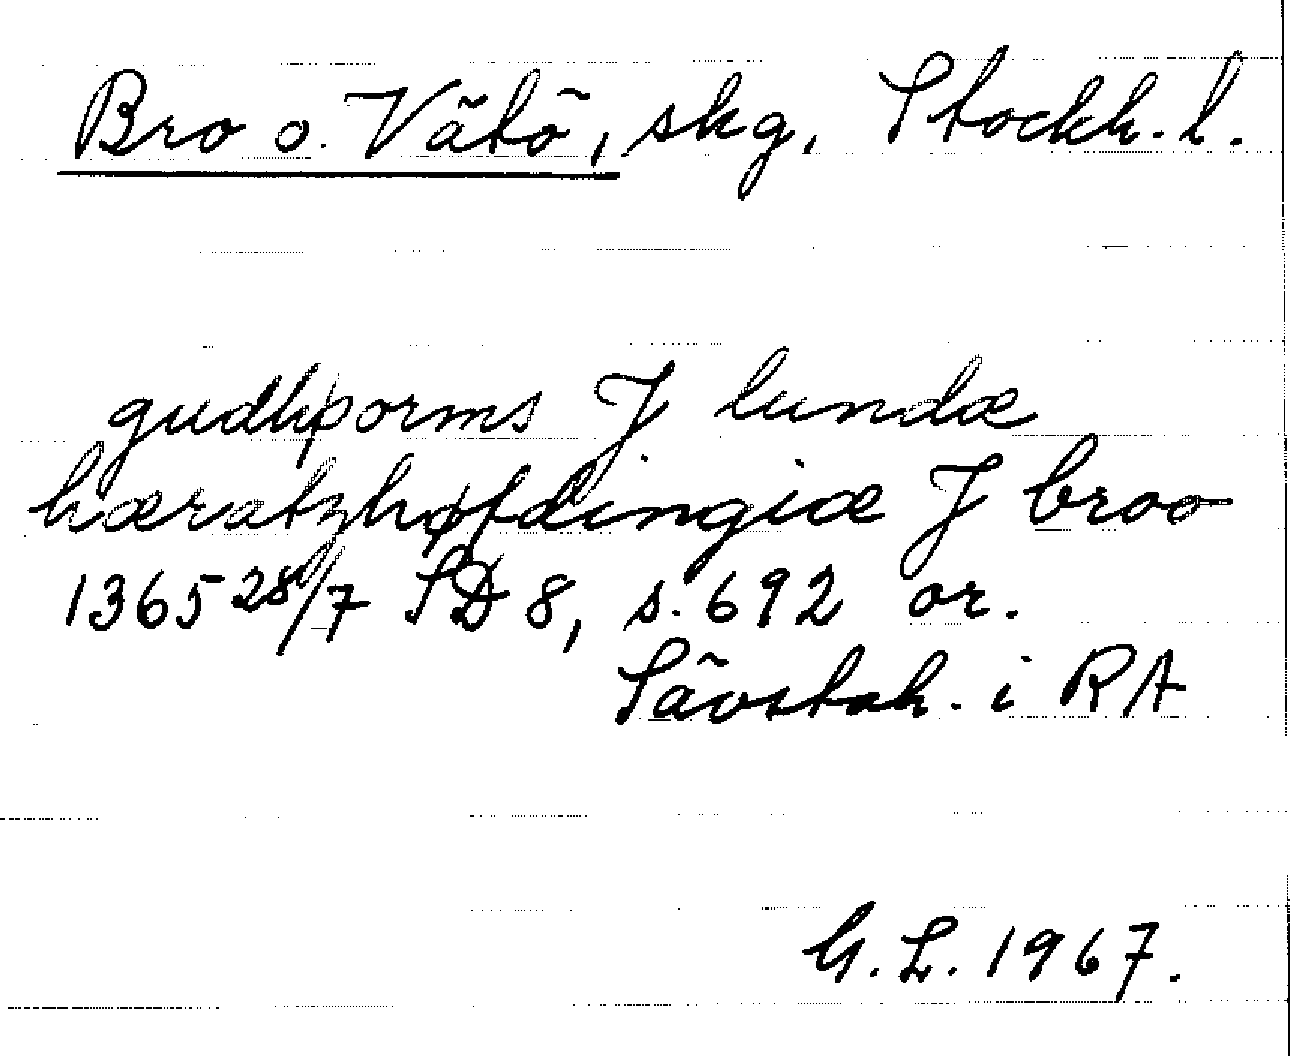 Bro o. Vätö, skg, Stockh. l.
gudhþorms J lundæ
hæratzhøfdingiæ J broo
1365 28/7 SD 8, s. 692 or.
Sävstah. i RA
G. L. 1967.